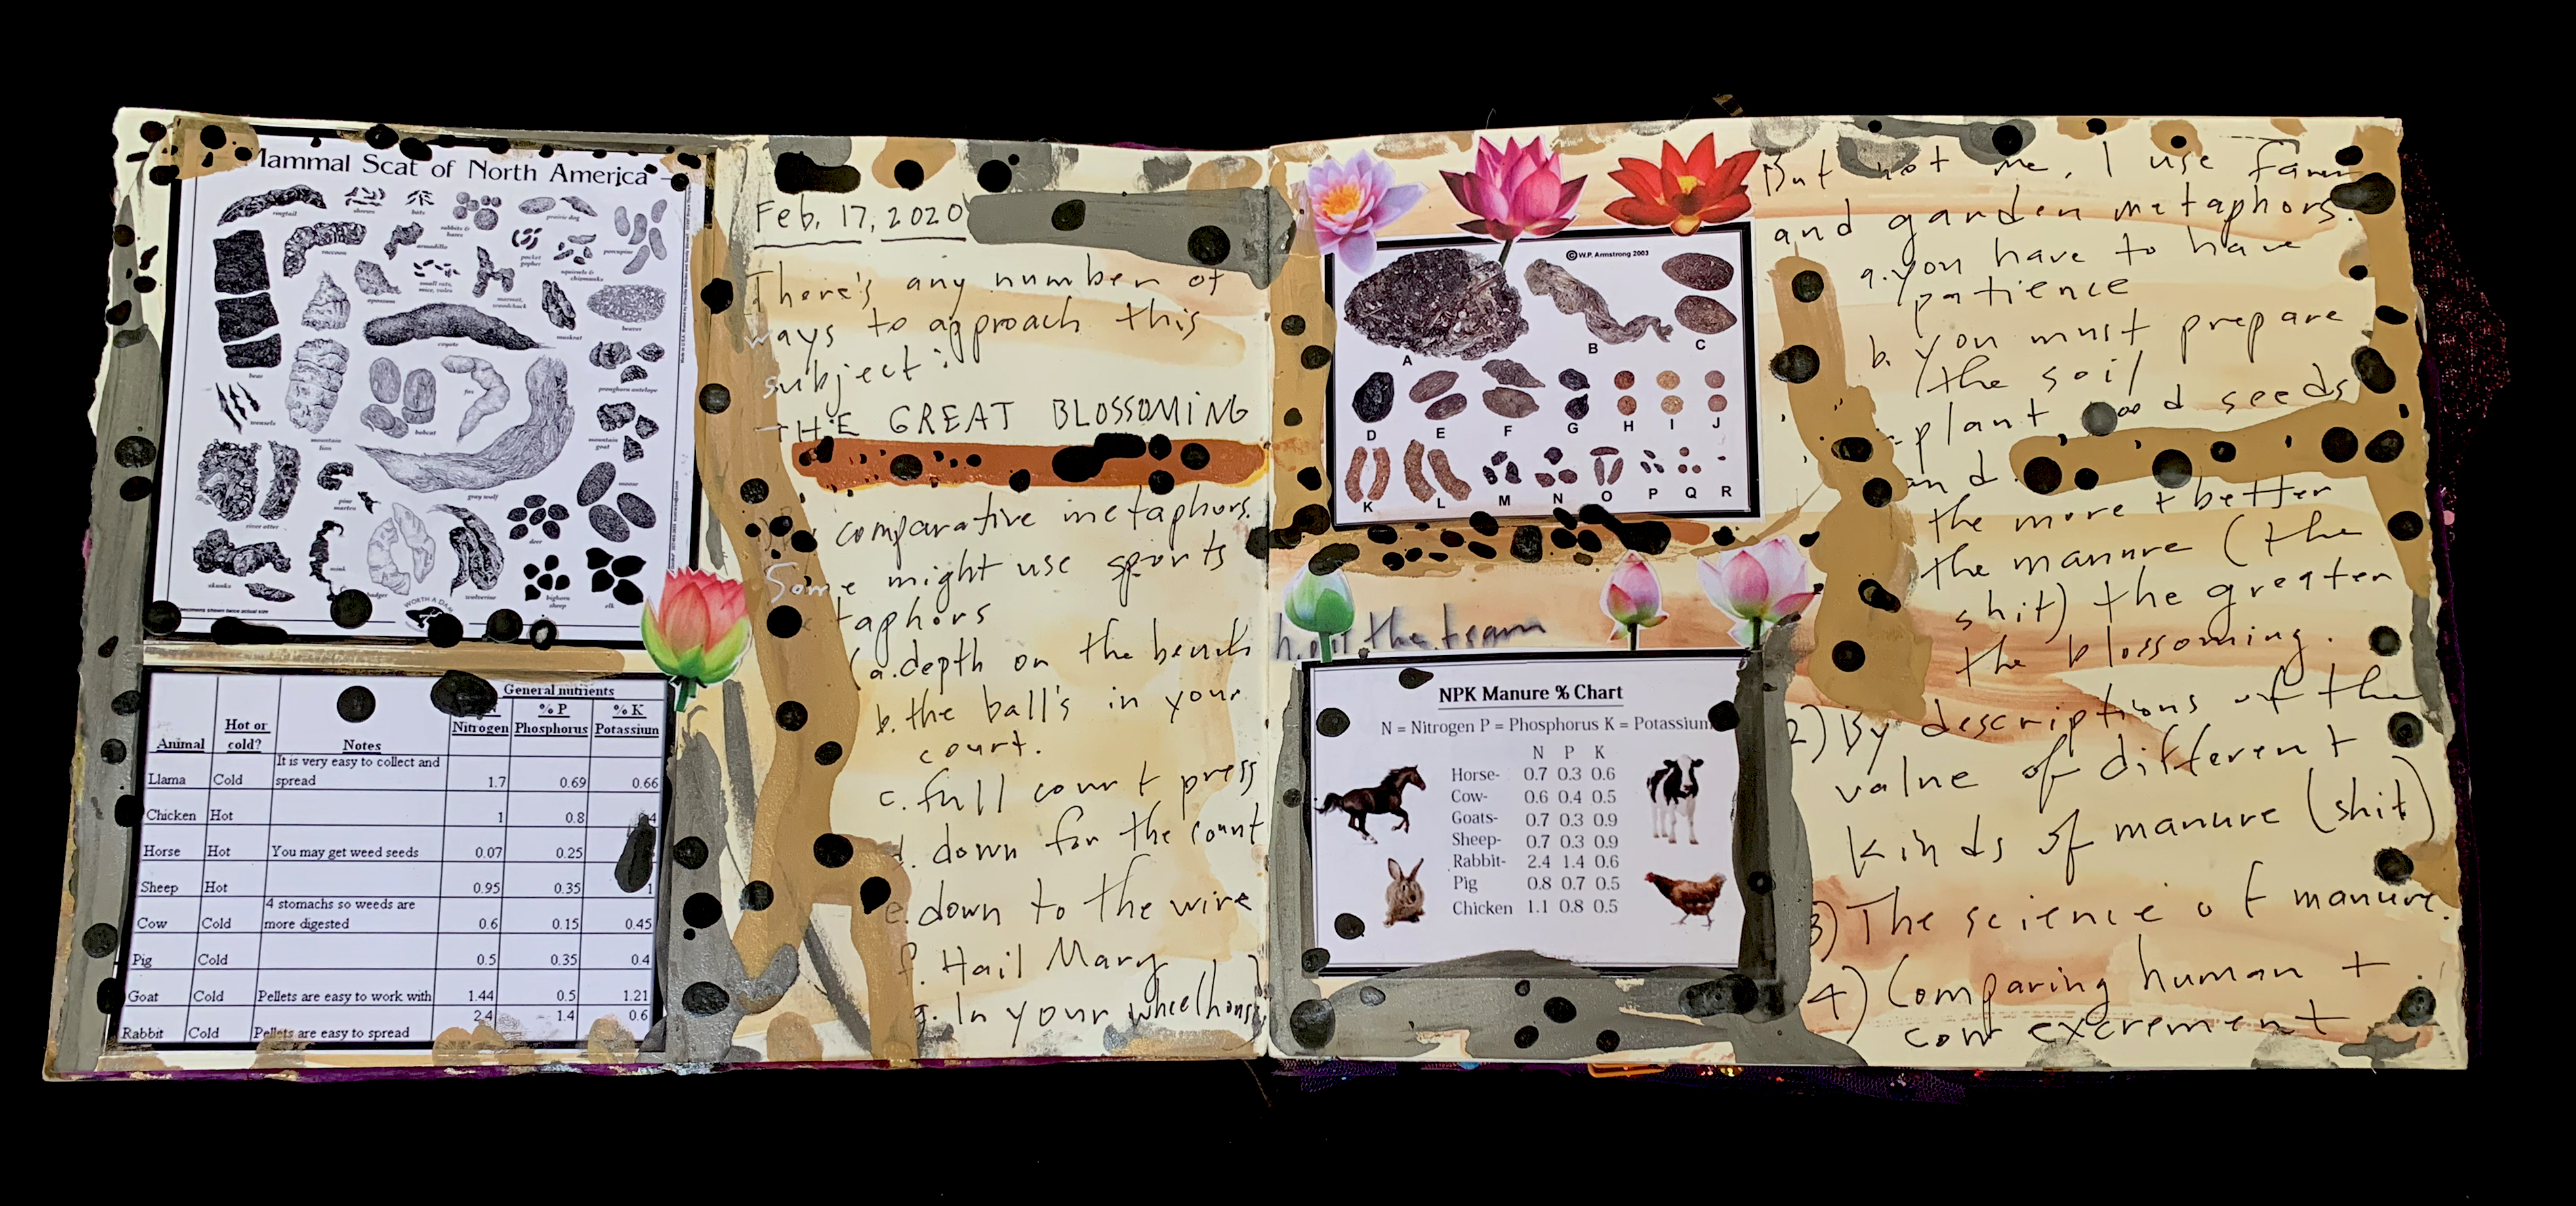 Mammal Scat of North America
ringtail
shrews
bats
rabbits & hares
prairie dog
porcupine
raccoon
armadillo
pocket gopher
squirrels & chipmunks
opossum
small rats, mice, voles
marmot, woodchuck
muskrat
beaver
coyote
bear
pronghorn antelope
weasels
mountain lion
bobcat
fox
mountain goat
river otter
pine marten
gray wolf
moose
deer
skunks
mink
badger
wolverine
bighorn sheep
elk
WORTH A DAM
General nutrients
Animal Hot or cold? Notes Nitrogen % P Phosphorus % K Potassium
Llama Cold It is very easy to collect and spread 1.7 0.69 0.66
Chicken Hot 1 0.8
Horse Hot You may get weed seeds 0.07 0.25
Sheep Hot 0.95 0.35 1
Cow Cold 4 stomachs so weeds are more digested 0.6 0.15 0.45
Pig Cold 0.5 0.35 0.4
Goat Cold Pellets are easy to work with 1.44 0.5 1.21
Rabbit Cold Pellets are easy to spread 2.4 1.4 0.6
Feb. 17, 2020
There's any number of
ways to approach this
subject:
THE GREAT BLOSSOMING
comparative metaphors.
Some might use sports
taphors
(a. depth on the bench
b. the ball's in your
court.
c. full court press
d. down for the count
e. down to the wire
f. Hail Mary
g. In your wheelhouse
©W.P. Armstrong 2003
A B C
D E F G H I J
K L M N O P Q R
the team
NPK Manure % Chart
N = Nitrogen P = Phosphorus K = Potassium
N P K
Horse- 0.7 0.3 0.6
Cow- 0.6 0.4 0.5
Goats- 0.7 0.3 0.9
Sheep- 0.7 0.3 0.9
Rabbit- 2.4 1.4 0.6
Pig 0.8 0.7 0.5
Chicken 1.1 0.8 0.5
But not me, I use farm
and garden metaphors.
a. you have to have
patience
b. you must prepare
the soil
plant good seeds
and
the more + better
the manure (the
shit) the greater
the blossoming.
2) By descriptions of the
value of different
kinds of manure (shit)
3) The science of manure.
4) Comparing human +
cow excrement